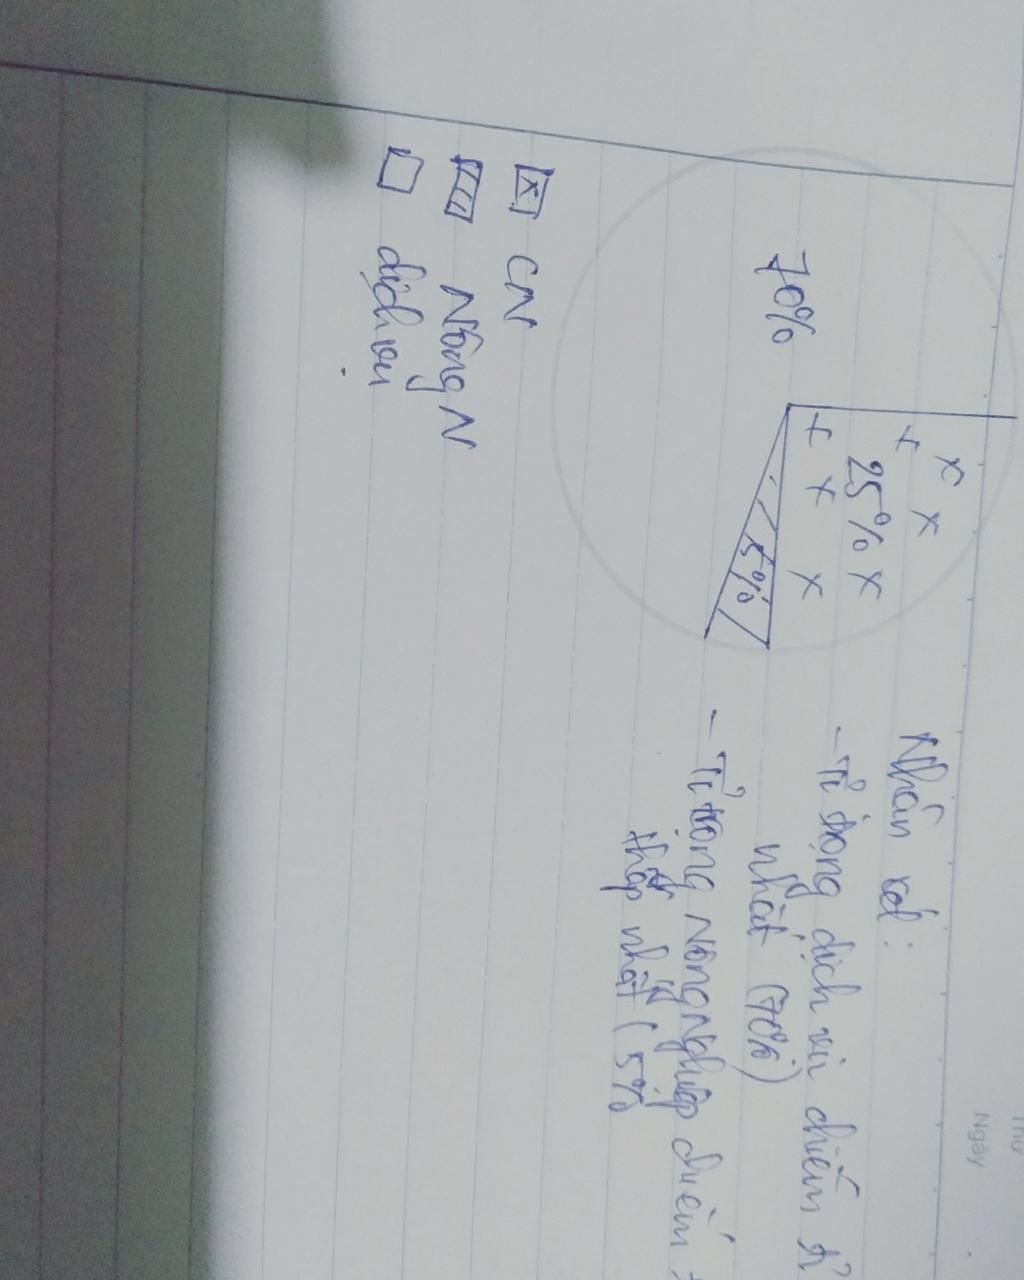 Thứ
Ngày
70%
25%
5%
CN
Nông N
dịch vụ
Nhận xét:
- Tỉ trọng dịch vụ chiếm tỉ
nhất (70%)
- Tỉ trọng Nông Nghiệp chiếm
thấp nhất ( 5%